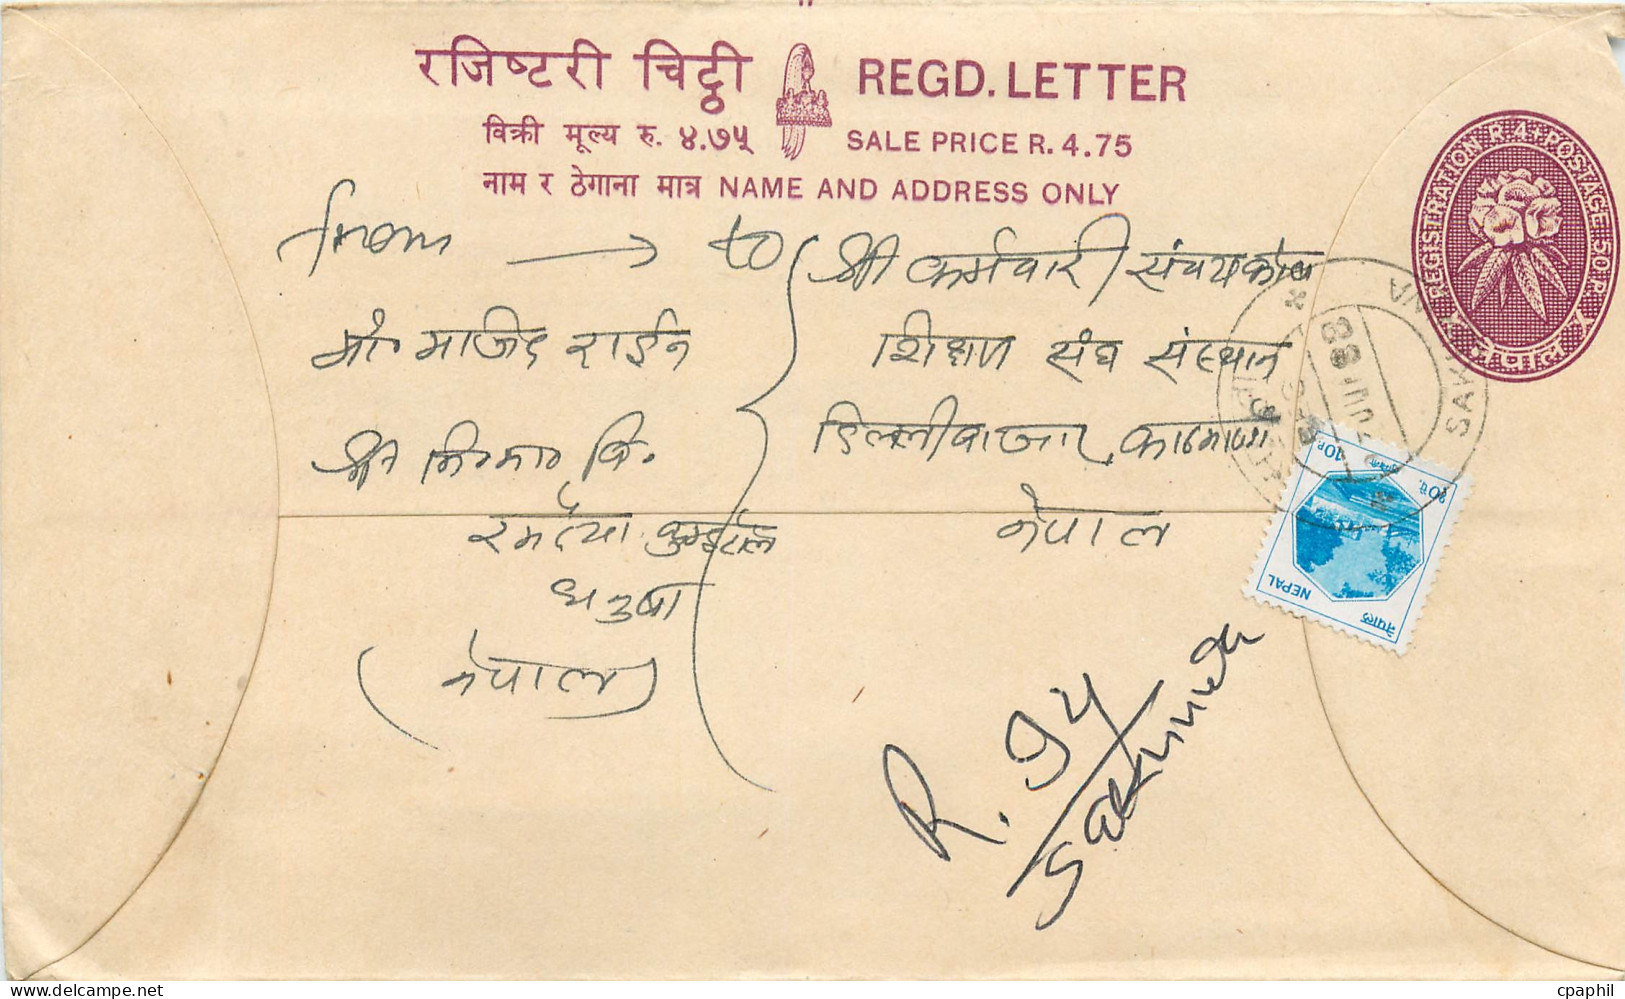 रजिष्टरी चिठ्ठी REGD. LETTER
विक्री मूल्य रु. ४.७५ SALE PRICE R. 4.75
नाम र ठेगाना मात्र NAME AND ADDRESS ONLY
REGISTRATION R 4+POSTAGE 50 P.
नेपाल
from → to
श्री कर्मचारी संचयकोष
शिक्षण संघ संस्थान
डिल्लीबाजार, काठमाण्डौ
नेपाल
मो० माजिद राईन
श्री नि० मा० वि०
धनुषा
(नेपाल)
10 P.
१० पै.
NEPAL
नेपाल
R. 94
Sakhuwa
cpaphil